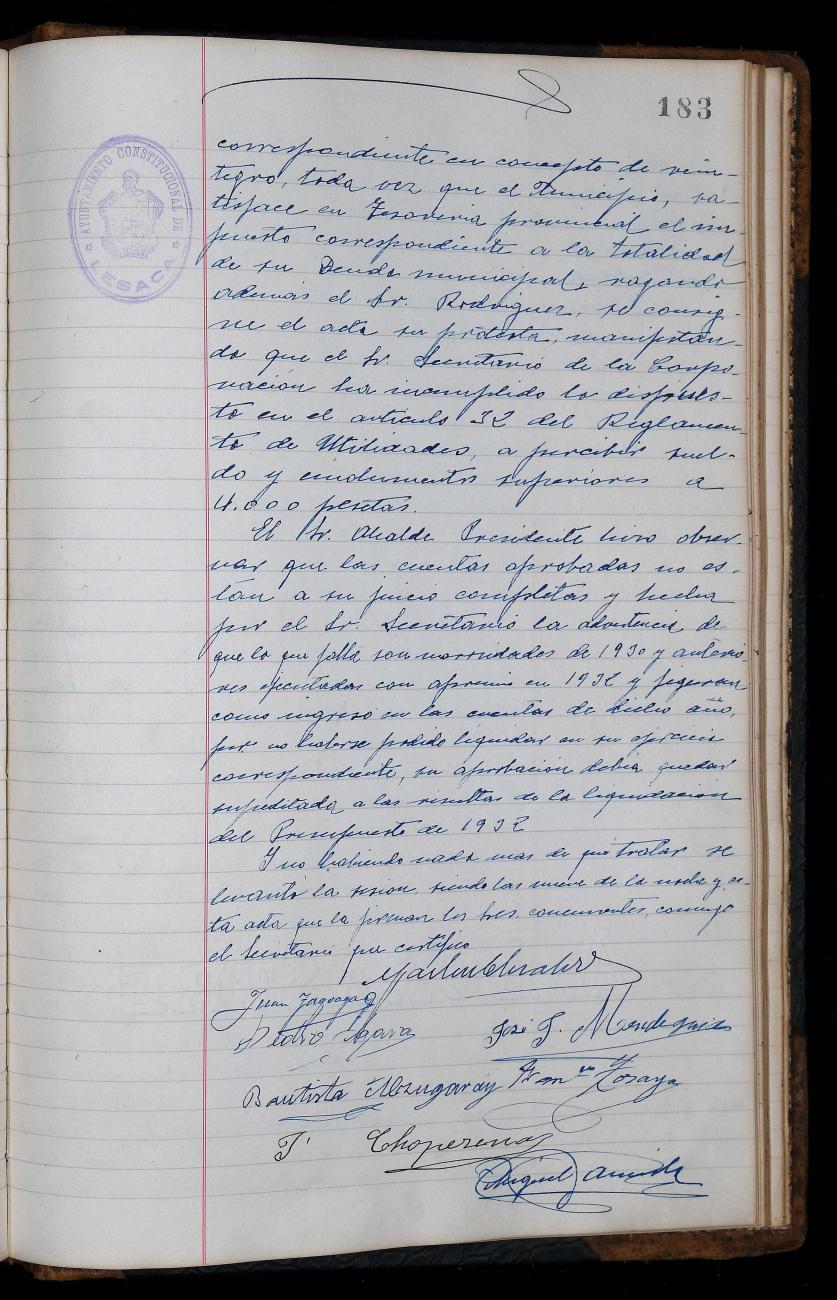 183
AYUNTAMIENTO CONSTITUCIONAL DE
LESACA
correspondiente en concepto de rein-
tegro, toda vez que el Municipio, sa-
tisface en Tesoreria provincial el im-
puesto correspondiente a la totalidad
de su Deuda municipal, rogando
además el Sr. Rodriguez, se consig-
ne el acta su protesta, manifestan-
do que el Sr. Secretario de la Corpo-
ración ha incumplido lo dispues-
to en el artículo 32 del Reglamen-
to de Utilidades, a percibir suel-
do y emolumentos superiores a
4.000 pesetas.
El Sr. Alcalde Presidente hizo obser-
var que las cuentas aprobadas no es-
tán a su juicio completas y hecha
por el Sr. Secretario la advertencia de
que lo que falta son morosidades de 1930 y anterio-
res ejecutadas con apremio en 1932 y figuran
como ingreso en las cuentas de dicho año,
por no haberse podido liquidar en su ejercicio
correspondiente, su aprobación debia quedar
supeditada a las resultas de la liquidacion
del Presupuesto de 1932
Y no habiendo nada mas de que tratar se
levantó la sesion, siendo las nueve de la noche y es-
ta acta que la firman los Sres. concurrentes, conmigo
el Secretario que certifico
Juan
Pedro
José J. Mendeguia
Bautista Alzugaray
Zozaya
Choperena
Miguel